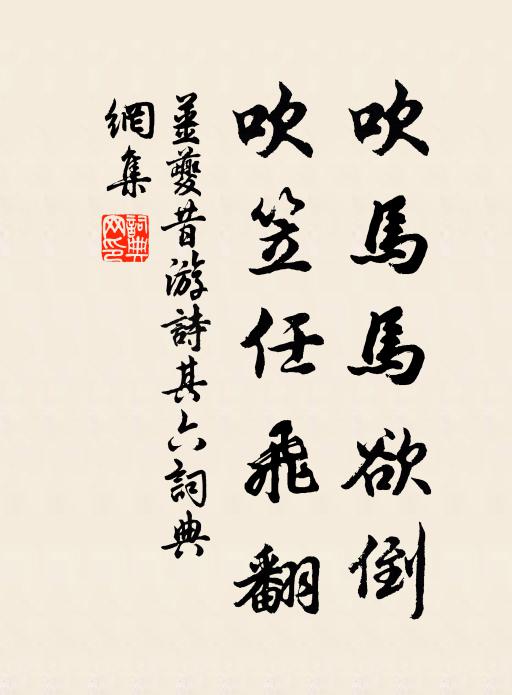 吹馬馬欲倒
吹笠任飛翻
姜夔昔游詩其六詞典
網集
詞典網印